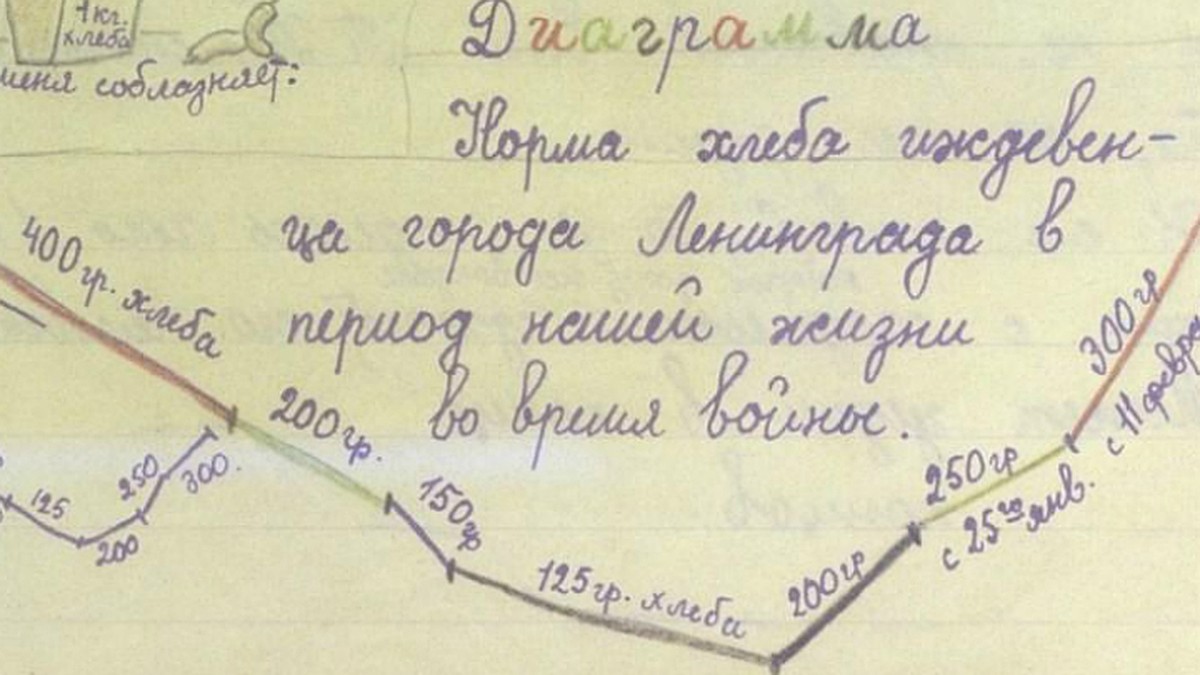 1 кг.
хлеба
меня соблазняет:
Диаграмма
Норма хлеба иждевен-
ца города Ленинграда в
период нашей жизни
во время войны.
400 гр. хлеба
200 гр.
150 гр
125 гр. хлеба
200 гр
250 гр
с 25го янв.
300 гр
с 11 февр
125
200
250
300.